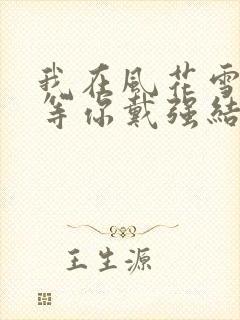 我在風花雪
等你戴强結
王生源